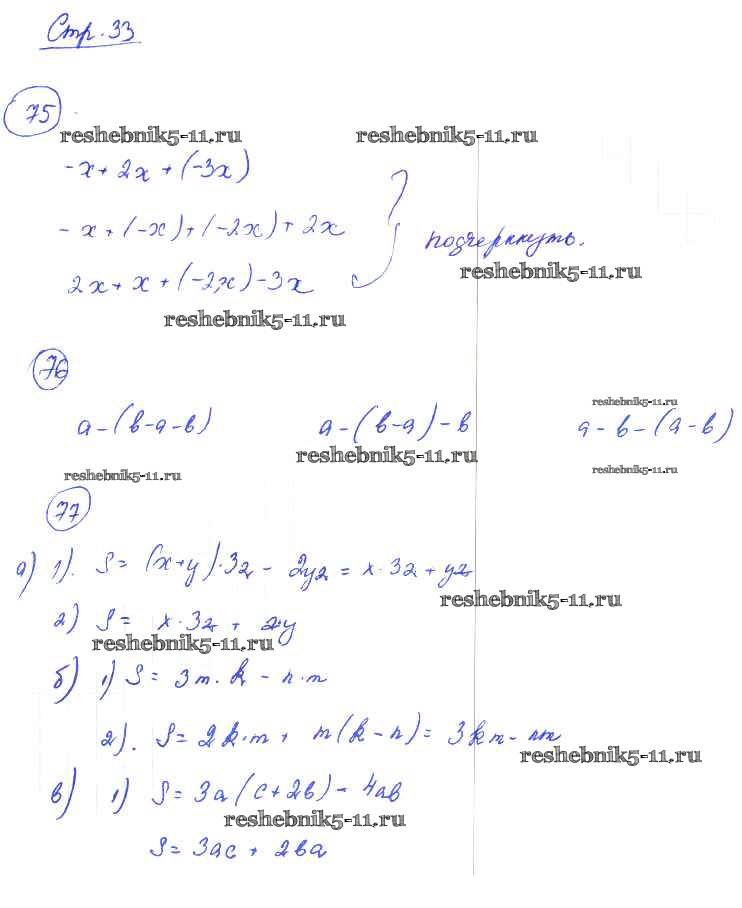 Стр. 33
75
reshebnik5-11.ru reshebnik5-11.ru
-x + 2x + (-3x)
- x + (-x) + (-2x) + 2x
подчеркнуть.
reshebnik5-11.ru
2x + x + (-2x) - 3x
reshebnik5-11.ru
76
reshebnik5-11.ru
a - (b - a - b) a - (b - a) - b a - b - (a - b)
reshebnik5-11.ru
reshebnik5-11.ru reshebnik5-11.ru
77
а) 1). S = (x + y) · 3z - 2yz = x · 3z + yz
reshebnik5-11.ru
2) S = x · 3z + zy
reshebnik5-11.ru
б) 1) S = 3m · k - n · m
2). S = 2k · m + m(k - n) = 3km - nm
reshebnik5-11.ru
в) 1) S = 3a(c + 2b) - 4ab
reshebnik5-11.ru
S = 3ac + 2ba